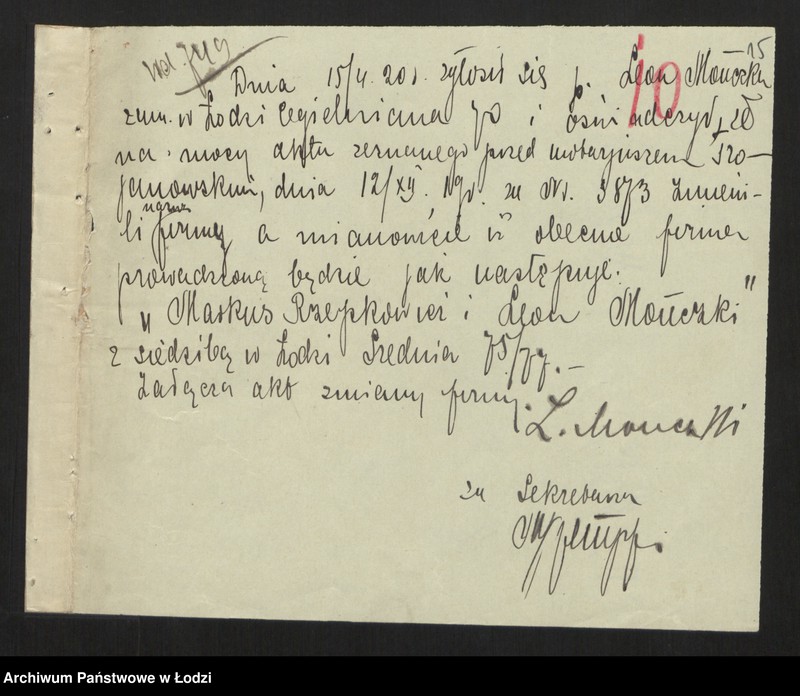 15
10
Dnia 15/4. 20 r. zgłosił się p. Leon Mouczki
zam. w Łodzi Cegielniana 70 i oświadczył, iż
na mocy aktu zeznanego przed notarjuszem Tro-
janowskim, dnia 12/XII. 19 r. za Nr. 3873 zmieni-
li nazwę firmy a mianowicie iż obecna firma
prowadzoną będzie jak następuje:
"Markus Rzepkowicz i Leon Mouczki"
z siedzibą w Łodzi Średnia 75/77.-
Załącza akt zmiany firmy.
L. Mouczki
za Sekretarza
Archiwum Państwowe w Łodzi